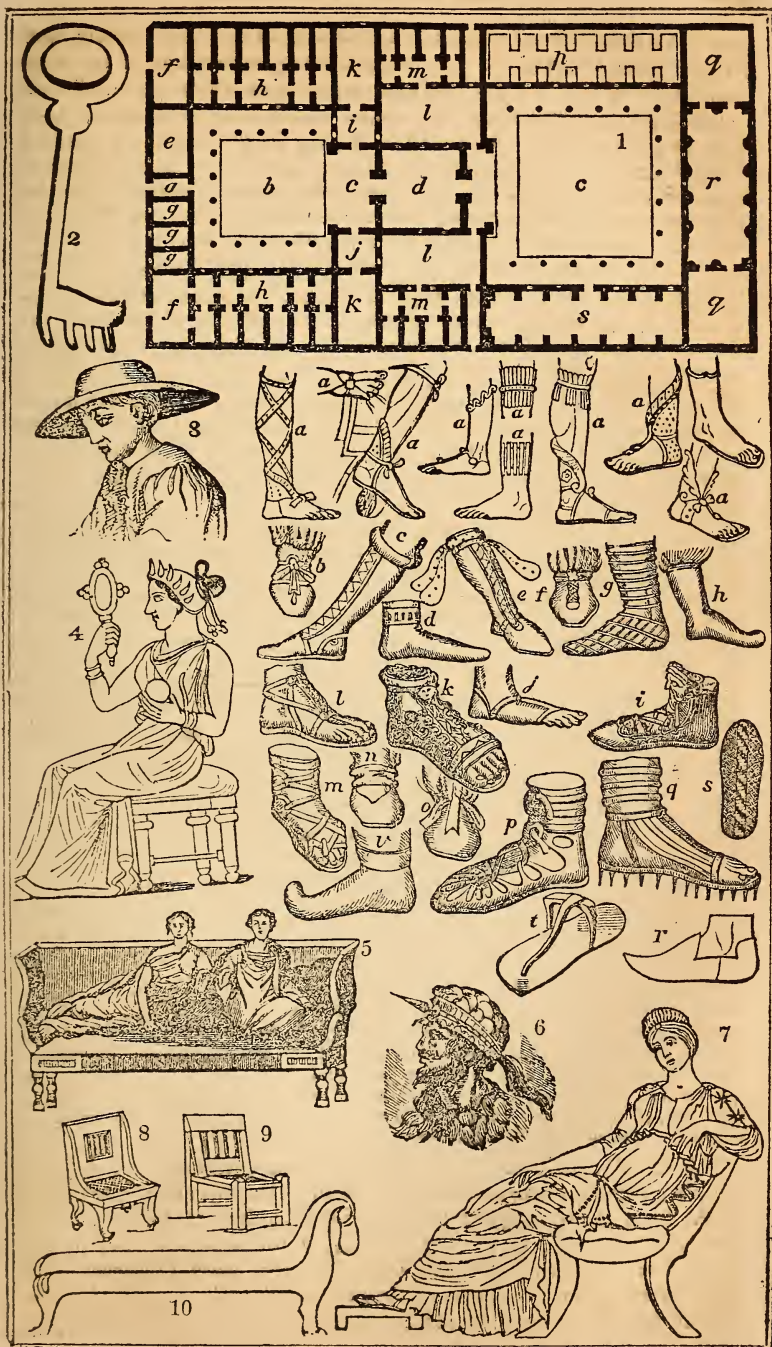 f h k m p q
i l
e 1
b c d c r
g
g
2 g
g j l
f h k m s q
3 a a a a a a a a
b c d e f g h
4
l k j i
m n o p q s
v
t r
5
6 7
8 9
10